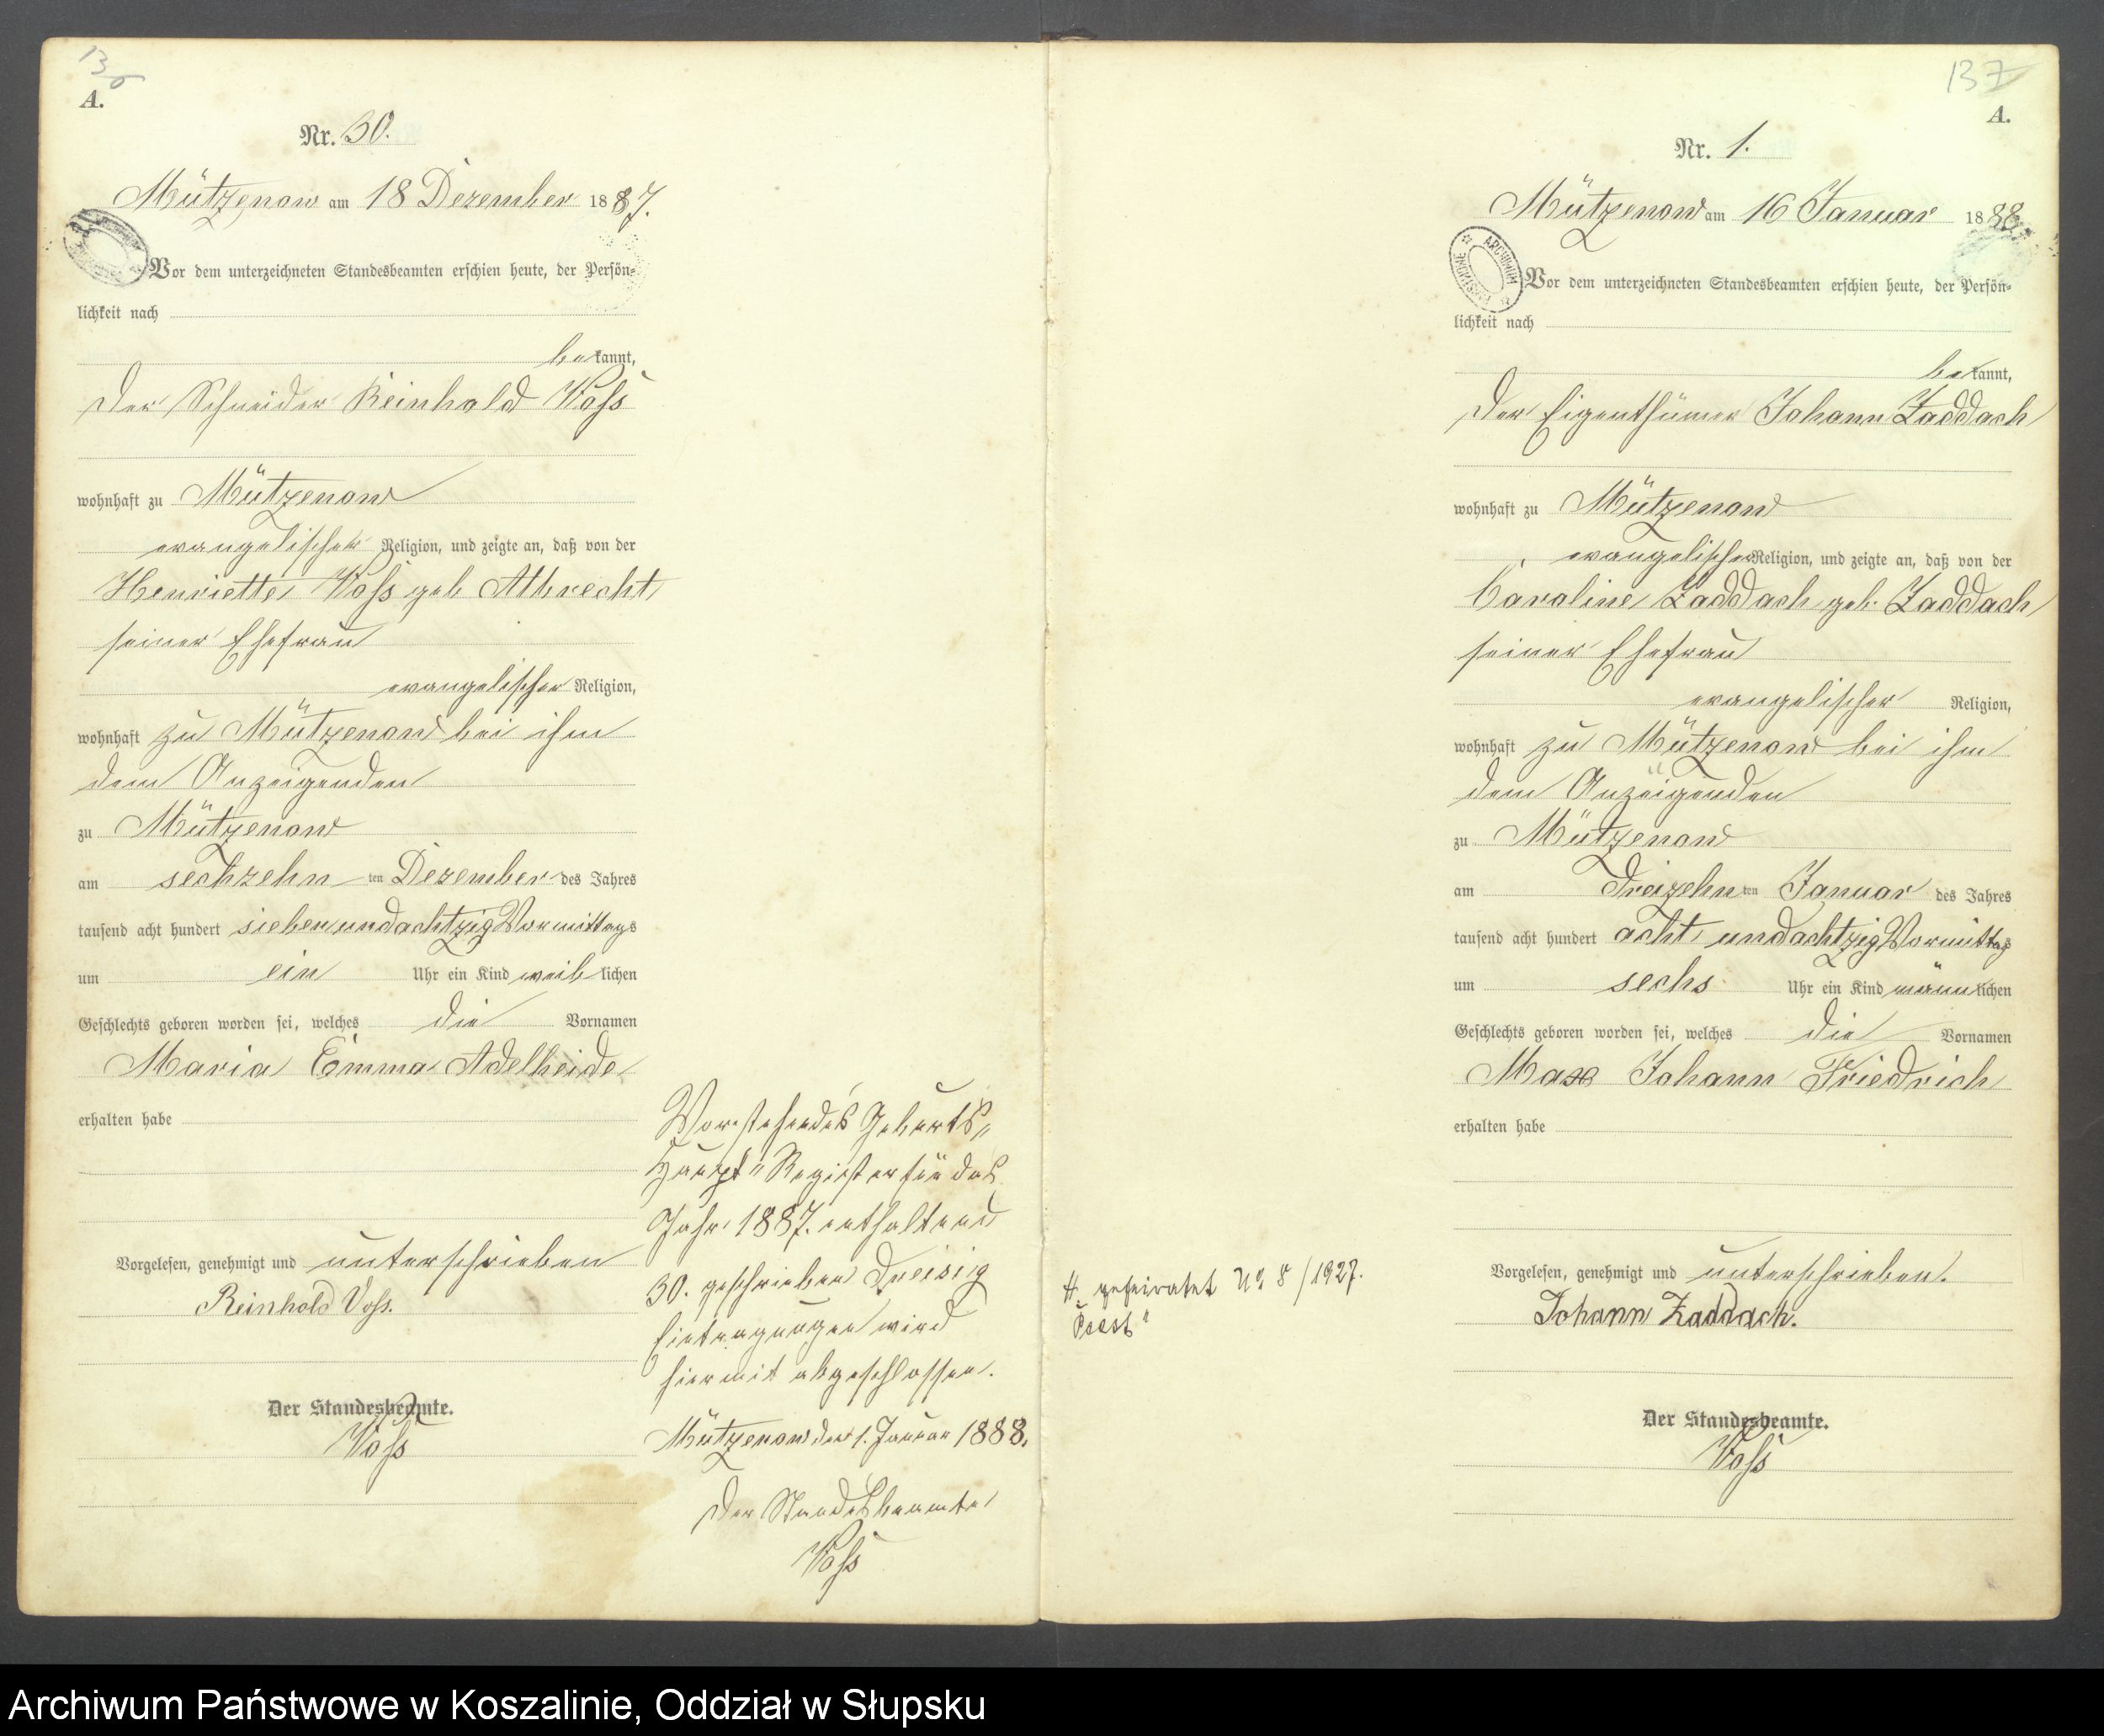 136
A.
Nr. 30.
Mützenow am 18 Dezember 1887.
Vor dem unterzeichneten Standesbeamten erschien heute, der Persön-
lichkeit nach
bekannt,
der Schneider Reinhold Voß
wohnhaft zu Mützenow
evangelischer Religion, und zeigte an, daß von der
Henriette Voß geb Albrecht
seiner Ehefrau
evangelischer Religion,
wohnhaft zu Mützenow bei ihm
dem Anzeigenden
zu Mützenow
am sechzehn ten Dezember des Jahres
tausend acht hundert siebenundachtzig Vormittags
um ein Uhr ein Kind weiblichen
Geschlechts geboren worden sei, welches die Vornamen
Maria Emma Adelheide
erhalten habe
Vorgelesen, genehmigt und unterschrieben
Reinhold Voß.
Der Standesbeamte.
Voß
Vorstehendes Geburts-
Haupt-Register für das
Jahr 1887. enthaltend
30. geschrieben Dreisig
Eintragungen wird
hiermit abgeschlossen.
Mützenow den 1. Januar 1888.
Der Standesbeamte
Voß
137
A.
Nr. 1.
Mützenow am 16 Januar 1888.
ARCHIWUM
Vor dem unterzeichneten Standesbeamten erschien heute, der Persön-
lichkeit nach
bekannt,
der Eigenthümer Johann Zaddach
wohnhaft zu Mützenow
evangelischer Religion, und zeigte an, daß von der
Caroline Zaddach geb. Zaddach
seiner Ehefrau
evangelischer Religion,
wohnhaft zu Mützenow bei ihm
dem Anzeigenden
zu Mützenow
am Dreizehn ten Januar des Jahres
tausend acht hundert acht undachtzig Vormittags
um sechs Uhr ein Kind männlichen
Geschlechts geboren worden sei, welches die Vornamen
Max Johann Friedrich
erhalten habe
Vorgelesen, genehmigt und unterschrieben.
Johann Zaddach.
Der Standesbeamte.
Voß
geheiratet No 8/1927.
Archiwum Państwowe w Koszalinie, Oddział w Słupsku